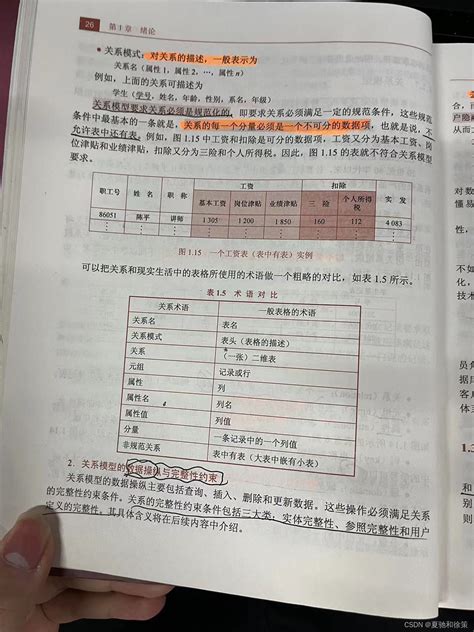 26 第1章 绪论
• 关系模式：对关系的描述，一般表示为
关系名（属性1，属性2，…，属性n）
例如，上面的关系可描述为
学生（学号，姓名，年龄，性别，系名，年级）
关系模型要求关系必须是规范化的，即要求关系必须满足一定的规范条件，这些规范
条件中最基本的一条就是，关系的每一个分量必须是一个不可分的数据项，也就是说，不
允许表中还有表。例如，图1.15中工资和扣除是可分的数据项，工资又分为基本工资、岗
位津贴和业绩津贴，扣除又分为三险和个人所得税。因此，图1.15的表就不符合关系模型
要求。
职工号 姓 名 职 称 工资 扣除 实 发
基本工资 岗位津贴 业绩津贴 三 险 个人所得税
86051 陈平 讲师 1 305 1 200 1 850 160 112 4 083
图1.15 一个工资表（表中有表）实例
可以把关系和现实生活中的表格所使用的术语做一个粗略的对比，如表1.5所示。
表1.5 术 语 对 比
关系术语 一般表格的术语
关系名 表名
关系模式 表头（表格的描述）
关系 （一张）二维表
元组 记录或行
属性 列
属性名 列名
属性值 列值
分量 一条记录中的一个列值
非规范关系 表中有表（大表中嵌有小表）
2. 关系模型的数据操纵与完整性约束
关系模型的数据操纵主要包括查询、插入、删除和更新数据。这些操作必须满足关系
的完整性约束条件。关系的完整性约束条件包括三大类：实体完整性、参照完整性和用户
定义的完整性。其具体含义将在后续内容中介绍。
CSDN @夏驰和徐策